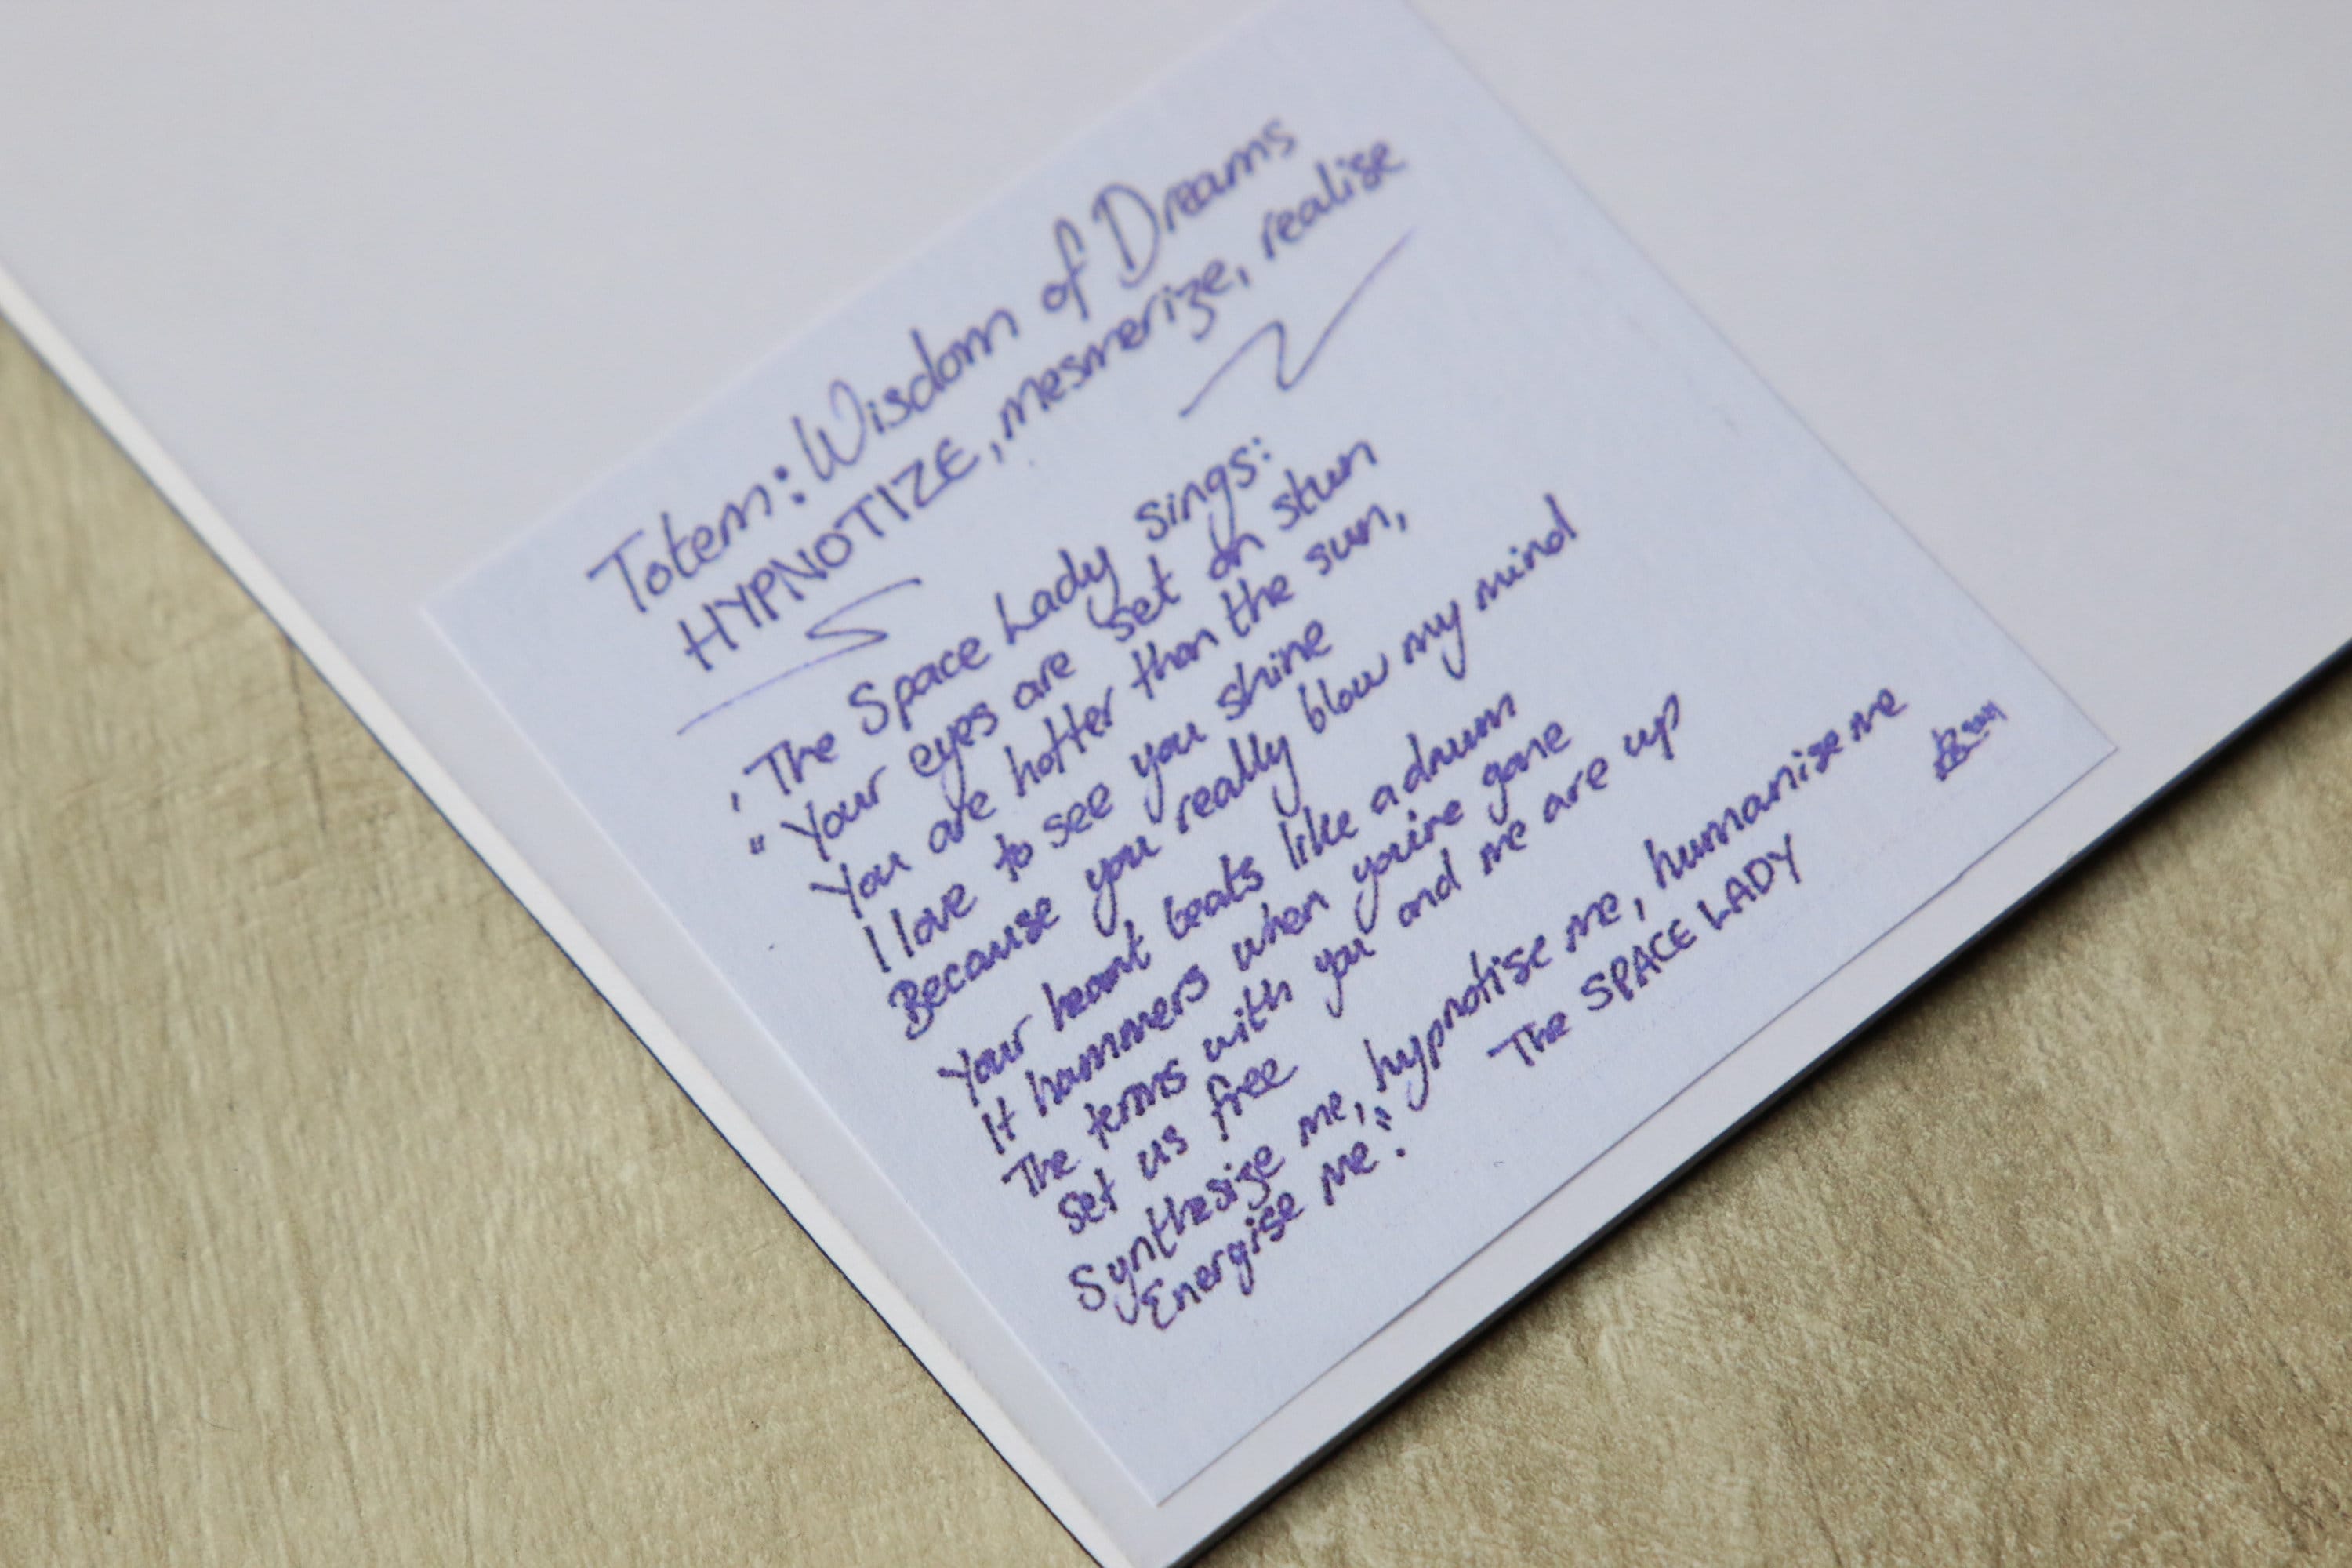 Totem: Wisdom of Dreams
HYPNOTIZE, mesmerize, realise
, The Space Lady sings:
" Your eyes are set on stun
You are hotter than the sun,
I love to see you shine
Because you really blow my mind
Your heart beats like a drum
It hammers when you're gone
The terms with you and me are up
Set us free
Synthesize me, hypnotise me, humanise me
Energise me".
The SPACE LADY